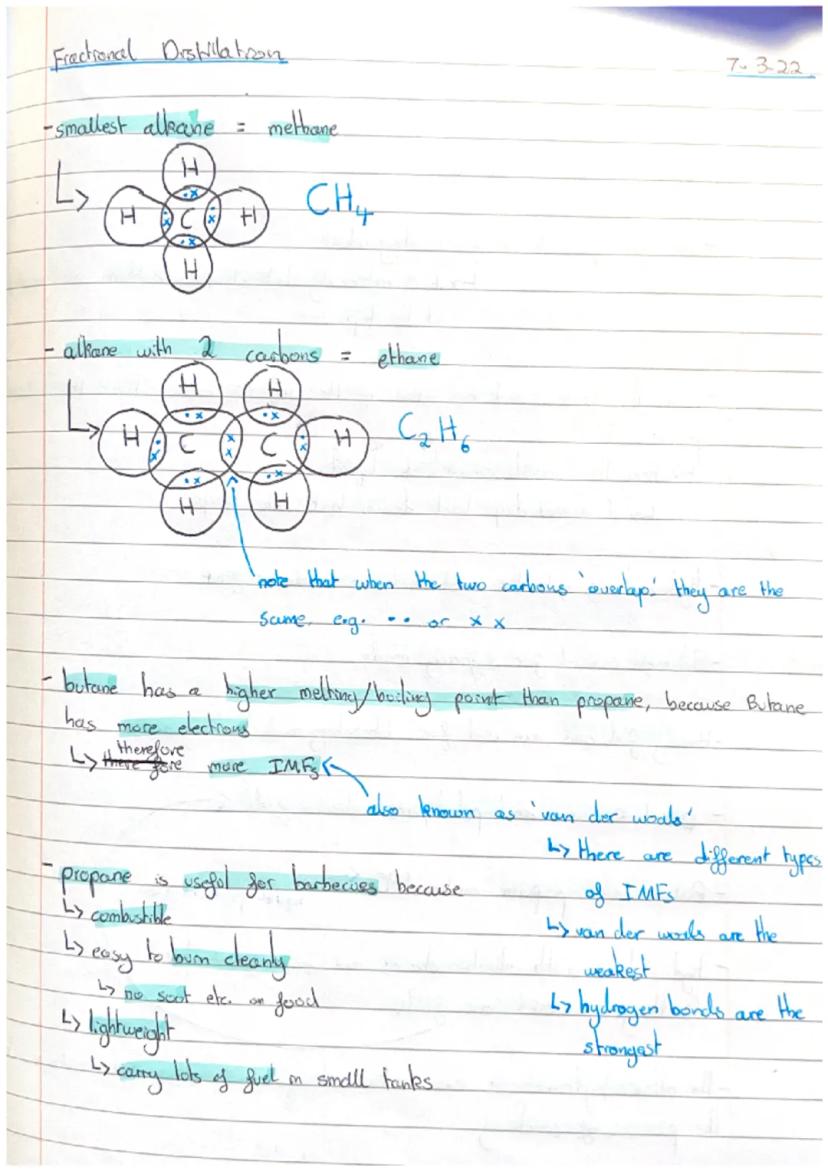 Fractional Distilation
7-3-22
- smallest alkane = methane
H
H C H
H
CH4
- alkane with 2 carbons = ethane
H H
H C C H
H H
C2H6
note that when the two carbons 'overlap' they are the
same, e.g. •• or xx
- butane has a higher melting/boiling point than propane, because Butane
has more electrons
↳ there fore therefore more IMFs
also known as 'van der waals'
↳ there are different types
of IMFs
↳ van der waals are the
weakest
↳ hydrogen bonds are the
strongest
- propane is useful for barbecues because
↳ combustible
↳ easy to burn cleanly
↳ no soot etc. on food
↳ lightweight
↳ carry lots of fuel in small tanks